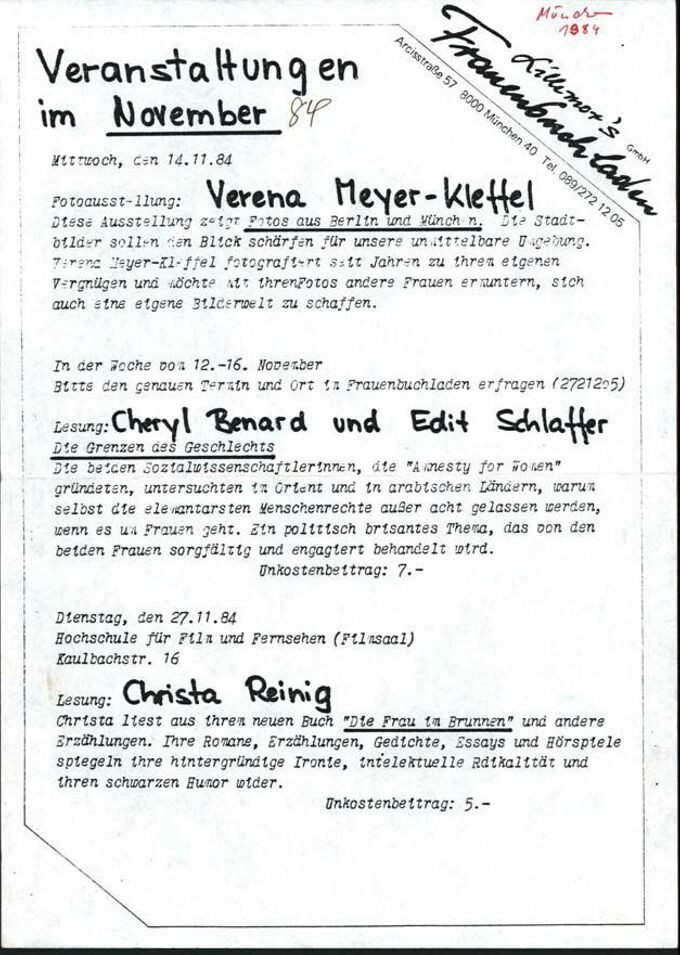 München
1984
Lillemor's
Frauenbuchladen GmbH
Arcisstraße 57 8000 München 40 Tel. 089/272 12 05
Veranstaltungen
im November 84
Mittwoch, den 14.11.84
Fotoausstellung: Verena Meyer-Kleffel
Diese Ausstellung zeigt Fotos aus Berlin und München. Die Stadt-
bilder sollen den Blick schärfen für unsere unmittelbare Umgebung.
Verena Meyer-Kleffel fotografiert seit Jahren zu ihrem eigenen
Vergnügen und möchte mit ihrenFotos andere Frauen ermuntern, sich
auch eine eigene Bilderwelt zu schaffen.
In der Woche vom 12.-16. November
Bitte den genauen Termin und Ort im Frauenbuchladen erfragen (2721205)
Lesung: Cheryl Benard und Edit Schlaffer
Die Grenzen des Geschlechts
Die beiden Sozialwissenschaftlerinnen, die "Amnesty for Women"
gründeten, untersuchten im Orient und in arabischen Ländern, warum
selbst die elemantarsten Menschenrechte außer acht gelassen werden,
wenn es um Frauen geht. Ein politisch brisantes Thema, das von den
beiden Frauen sorgfältig und engagiert behandelt wird.
Unkostenbeitrag: 7.-
Dienstag, den 27.11.84
Hochschule für Film und Fernsehen (Filmsaal)
Kaulbachstr. 16
Lesung: Christa Reinig
Christa liest aus ihrem neuen Buch "Die Frau im Brunnen" und andere
Erzählungen. Ihre Romane, Erzählungen, Gedichte, Essays und Hörspiele
spiegeln ihre hintergründige Ironie, intelektuelle Rdikalität und
ihren schwarzen Humor wider.
Unkostenbeitrag: 5.-